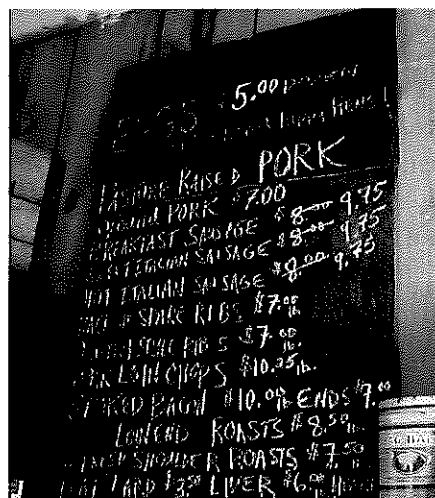 EGGS $5.00
PASTURE RAISED PORK
GROUND PORK $7.00
BREAKFAST SAUSAGE $8.00 9.75
ITALIAN SAUSAGE $8.00 9.75
HOT ITALIAN SAUSAGE $8.00 9.75
SPARE RIBS $7.00 lb.
RIBS $7.00 lb.
LOIN CHOPS $10.25 lb.
BACON $10.00 lb ENDS $7.00
LOIN END ROASTS $8.50 lb
SHOULDER ROASTS $7.50
LARD $3.50 LIVER $6.00